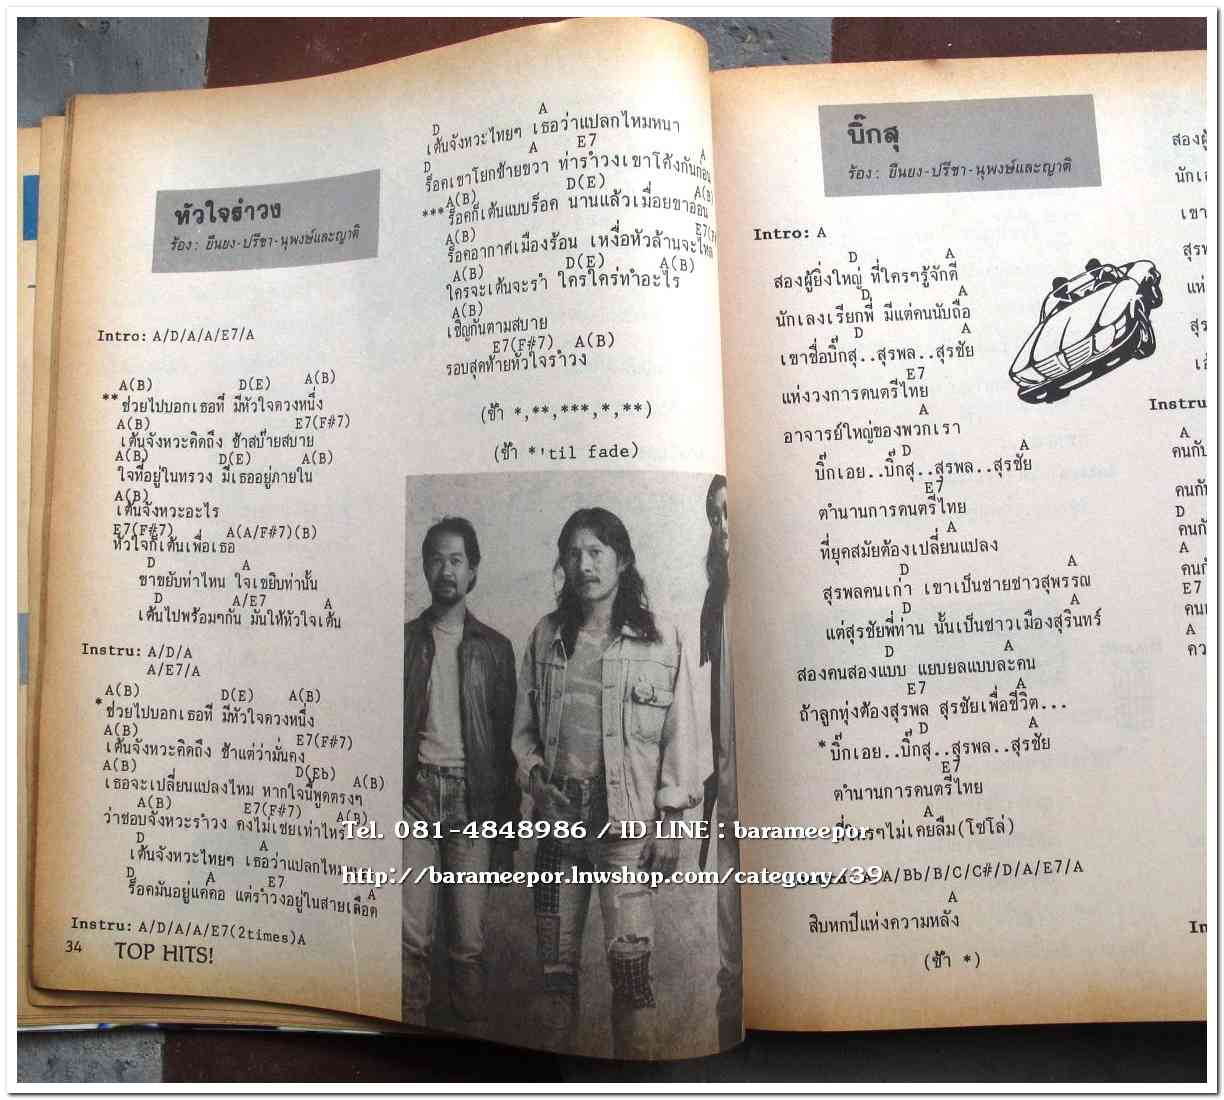 หัวใจรำวง
ร้อง : ยืนยง-ปรีชา-นุพงษ์และญาติ
Intro: A/D/A/A/E7/A
A(B) D(E) A(B)
**ช่วยไปบอกเธอที มีหัวใจดวงหนึ่ง
A(B) E7(F#7)
เต้นจังหวะคิดถึง ช้าสบ๊ายสบาย
A(B) D(E) A(B)
ใจที่อยู่ในทรวง มีเธออยู่ภายใน
A(B)
เต้นจังหวะอะไร
E7(F#7) A(A/F#7)(B)
หัวใจก็เต้นเพื่อเธอ
D A
ขาขยับท่าไหน ใจเขยิบท่านั้น
D A/E7 A
เต้นไปพร้อมๆกัน มันให้หัวใจเต้น
Instru: A/D/A
A/E7/A
A(B) D(E) A(B)
*ช่วยไปบอกเธอที มีหัวใจดวงหนึ่ง
A(B) E7(F#7)
เต้นจังหวะคิดถึง ช้าแต่ว่ามั่นคง
A(B) D(Eb) A(B)
เธอจะเปลี่ยนแปลงไหม หากใจนี้พูดตรงๆ
A(B) E7(F#7) A(B)
ว่าชอบจังหวะรำวง คงไม่เชยเท่าไหร่
D A
เต้นจังหวะไทยๆ เธอว่าแปลกไหม
D A E7 A
ร็อคมันอยู่แค่คอ แต่รำวงอยู่ในสายเลือด
Instru: A/D/A/A/E7(2times)A
34 TOP HITS!
D A
เต้นจังหวะไทยๆ เธอว่าแปลกไหมหนา
D A E7 A
ร็อคเขาโยกซ้ายขวา ท่ารำวงเขาโค้งกันก่อน
A(B) D(E) A(B)
***ร็อคก็เต้นแบบร็อค นานแล้วเมื่อยขาอ่อน
A(B) E7(F
ร็อคอากาศเมืองร้อน เหงื่อหัวล้านจะไหล
A(B) D(E) A(B)
ใครจะเต้นจะรำ ใครใคร่ทำอะไร
A(B)
เชิญกันตามสบาย
E7(F#7) A(B)
รอบสุดท้ายหัวใจรำวง
(ซ้ำ *,**,***,*,**)
(ซ้ำ *'til fade)
บิ๊กสุ
ร้อง : ยืนยง-ปรีชา-นุพงษ์และญาติ
Intro: A
D A
สองผู้ยิ่งใหญ่ ที่ใครๆรู้จักดี
D A
นักเลงเรียกพี่ มีแต่คนนับถือ
D A
เขาชื่อบิ๊กสุ..สุรพล..สุรชัย
E7
แห่งวงการดนตรีไทย
A
อาจารย์ใหญ่ของพวกเรา
D A
บิ๊กเอย..บิ๊กสุ..สุรพล..สุรชัย
E7
ตำนานการดนตรีไทย
A
ที่ยุคสมัยต้องเปลี่ยนแปลง
D A
สุรพลคนเก่า เขาเป็นชายชาวสุพรรณ
D A
แต่สุรชัยพี่ท่าน นั้นเป็นชาวเมืองสุรินทร์
D A
สองคนสองแบบ แยบยลแบบละคน
E7 A
ถ้าลูกทุ่งต้องสุรพล สุรชัยเพื่อชีวิต...
D A
*บิ๊กเอย..บิ๊กสุ..สุรพล..สุรชัย
E7
ตำนานการดนตรีไทย
A
ไม่เคยลืม(โซโล่)
A/Bb/B/C/C#/D/A/E7/A
A
สิบหกปีแห่งความหลัง
(ซ้ำ *)
สองผู้
นักเ
เขา
สุรพ
แห่
สุร
Instru
A
คนกับ
คนกับ
D
คนกั
A
คนกั
E7
คน
A
คว
In
Tel. 081-4848986 / ID LINE : barameepor
http://barameepor.lnwshop.com/category/39